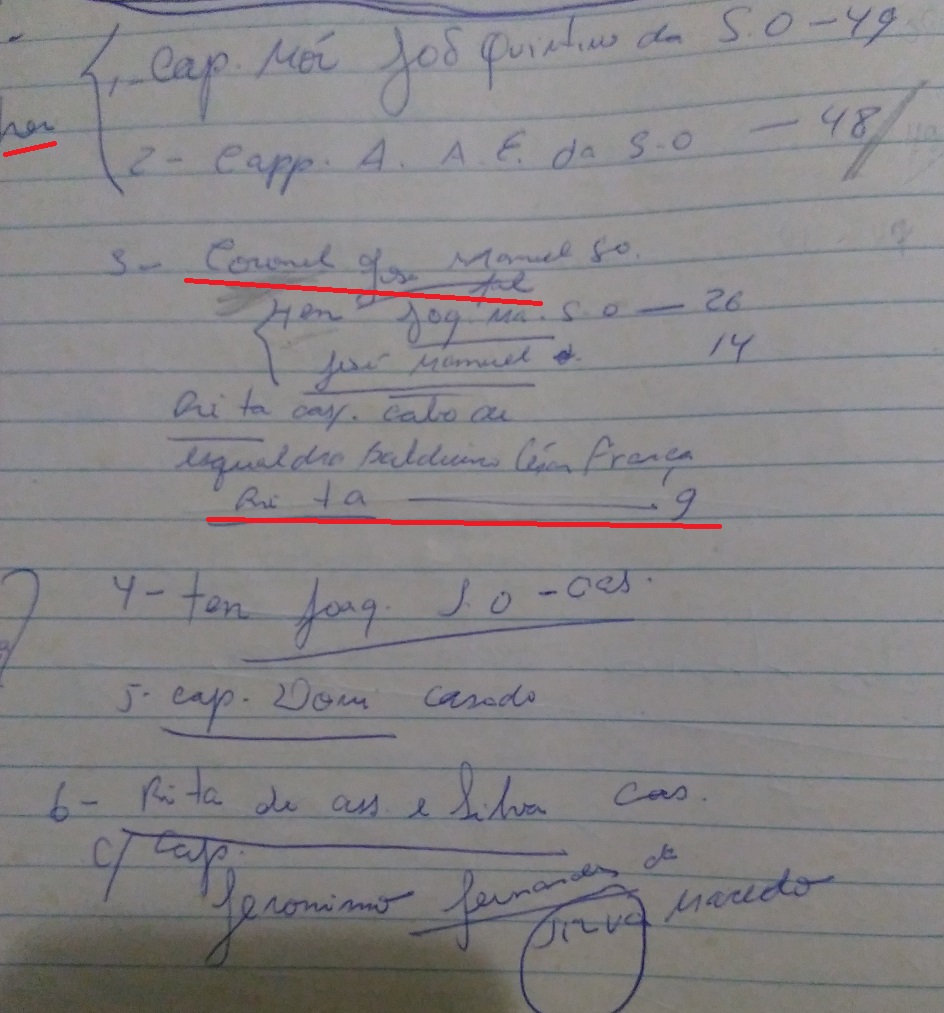 1- Cap. Mór José Quintino da S.O - 49
2- Capp. A. A. E. da S.O - 48
3- Coronel José Manuel SO.
fal
ten Joq. Ma. S.O - 26
José Manuel 14
Rita cas. cabo de
esqualdra Balduino César França
Rita - 9
4- ten Joaq. S.O - cas.
5- cap. Dom casado
6- Rita de ass. e Silva cas.
c/ Cap.
Jeronimo Fernandes da
Silva Macedo